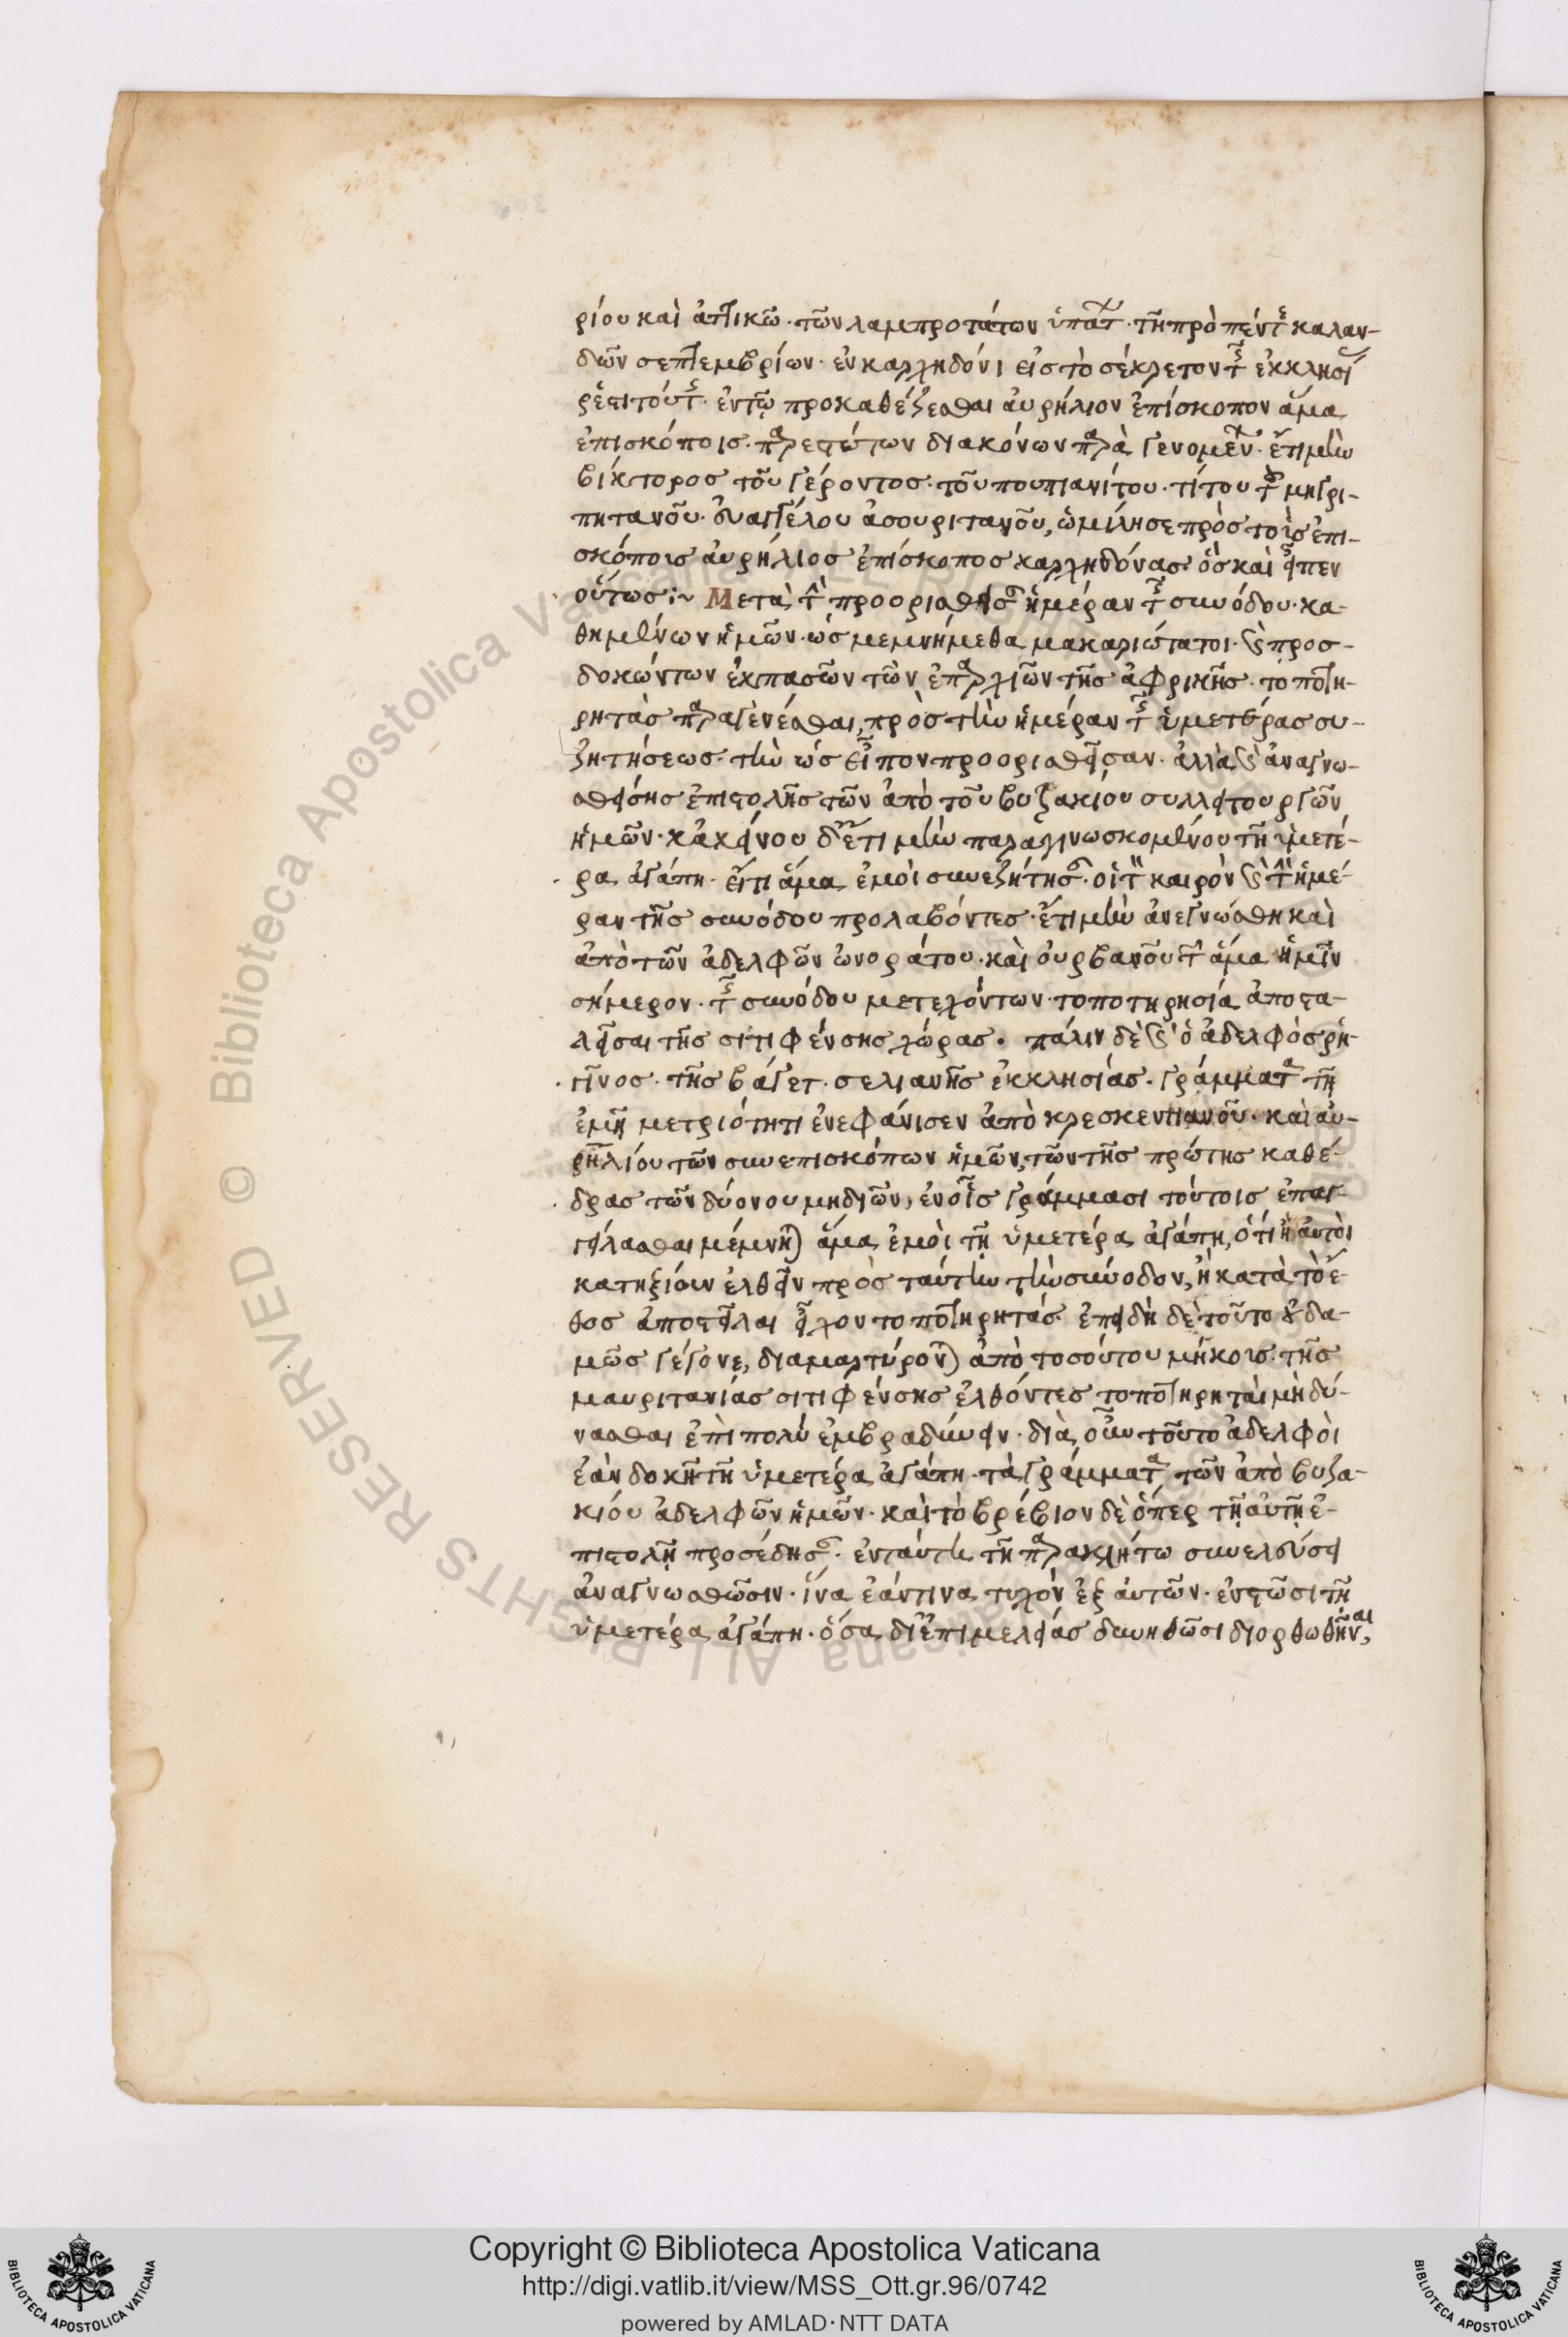 ρίου καὶ ἀττικῶ· τῶν λαμπροτάτων ὑπάτ· τῆ πρὸ πέντε καλαν-
δῶν σεπτεμβρίων· ἐν καρχηδόνι εἰς τὸ σέκρετον τῆς ἐκκλησί
ρεστιτούτης· ἐν τῷ προκαθέζεσθαι ἀυρήλιον ἐπίσκοπον ἅμα
ἐπισκόποις· παρεστώτων διακόνων παρὰ γενομέν· ἔτι μὴν
βίκτορος τοῦ γέροντος· τοῦ πουπιανίτου· τίτου τοῦ μηγρι-
πητανοῦ· ἐυαγγέλου ἀσουριτανοῦ, ὡμίλησε πρὸς τοὺς ἐπι-
σκόπους ἀυρήλιος ἐπίσκοπος καρχηδόνας· ὃς καὶ εἶπεν
οὕτως :~ Μετὰ τὴν προορισθεῖσαν ἡμέραν τῆς συνόδου· κα-
θημένων ἡμῶν· ὡς μεμνήμεθα μακαριώτατοι· καὶ προσ-
δοκώντων ἐκ πασῶν τῶν ἐπαρχιῶν τῆς ἀφρικῆς· τοποτη-
ρητὰς παραγενέσθαι, πρὸς τὴν ἡμέραν τῆς ἡμετέρας συ-
ζητήσεως· τὴν ὡς εἶπον προορισθεῖσαν· ἀλλὰ καὶ ἀναγνω-
σθείσης ἐπιστολῆς τῶν ἀπὸ τοῦ βυζακίου συλλειτουργῶν
ἡμῶν· κἀκείνου δ' ἔτι μὴν παραγινωσκομένου τῆ ὑμετέ-
ρα ἀγάπη· ἔτι ἅμα ἐμοὶ συνεζήτησαν· οἱ τὸν καιρὸν καὶ τὴν ἡμέ-
ραν τῆς συνόδου προλαβόντες· ἔτι μὴν ἀνεγνώσθη καὶ
ἀπὸ τῶν ἀδελφῶν ὡνοράτου· καὶ ὀυρβανοῦ τῶν ἅμα ἡμῖν
σήμερον· τῆς συνόδου μετεχόντων· τοποτηρησία ἀποστα-
λεῖσαι τῆς σιτιφένσης χώρας· πάλιν δὲ καὶ ὁ ἀδελφὸς ῥη-
γῖνος· τῆς βάγετ· σελιανῆς ἐκκλησίας· γράμματα τῆ
ἐμῆ μετριότητι ἐνεφάνισεν ἀπὸ κρεσκεντιανοῦ· καὶ ἀυ-
ρηλίου τῶν συνεπισκόπων ἡμῶν, τῶν τῆς πρώτης καθέ-
δρας τῶν δύο νουμηδιῶν, ἐν οἷς γράμμασι τούτοις ἐπαγ-
γείλασθαι μέμνηται ἅμα ἐμοὶ τῆ ὑμετέρα ἀγάπη, ὅτι ἢ ἀυτοὶ
κατηξίουν ἐλθεῖν πρὸς ταύτην τὴν σύνοδον, ἢ κατὰ τὸ ἔ-
θος ἀποστεῖλαι εἶχον τοποτηρητάς· ἐπειδὴ δὲ τοῦτο οὐδα-
μῶς γέγονε, διαμαρτύρονται ἀπὸ τοσούτου μήκους· τῆς
μαυριτανίας σιτιφένσης ἐλθόντες τοποτηρηταὶ μὴ δύ-
νασθαι ἐπὶ πολὺ ἐμβραδύνειν· διὰ οὖν τοῦτο ἀδελφοὶ
ἐὰν δοκῆ τῆ ὑμετέρα ἀγάπη· τὰ γράμματα τῶν ἀπὸ βυζα-
κίου ἀδελφῶν ἡμῶν· καὶ τὸ βρέβιον δὲ ὅπερ τῆ ἀυτῆ ἐ-
πιστολῆ προσέδησαν· ἐν ταύτη τῆ παρακλήτω συνελεύσει
ἀναγνωσθῶσιν· ἵνα ἐάν τινα τυχὸν ἐξ ἀυτῶν· ἐνστῶσι τῆ
ὑμετέρα ἀγάπη· ὅσα δι' ἐπιμελείας δυνηθῶσι διορθωθῆναι,
Copyright © Biblioteca Apostolica Vaticana
http://digi.vatlib.it/view/MSS_Ott.gr.96/0742
powered by AMLAD·NTT DATA